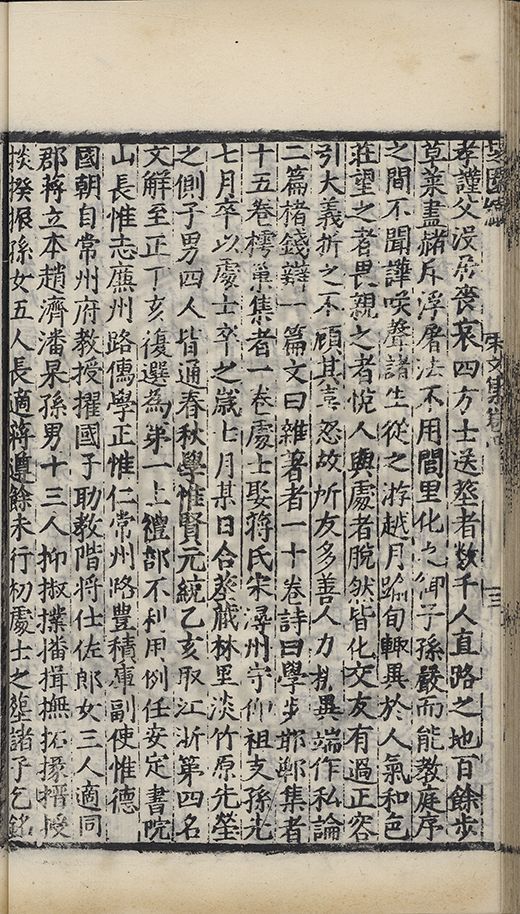 朱文集卷四
三
孝謹父沒居喪哀四方士送塟者數千人直路之地百餘步
草菜盡緒斥浮屠法不用閭里化之御子孫嚴而能教庭序
之間不聞譁咲聲諸生從之游越月踰旬輒異於人氣和色
莊望之者畏親之者悅人與處者脫然皆化交友有過正容
引大義折之不顧其喜怒故所友多善人力異端作私論
二篇楮錢辯一篇文曰雜著者一十卷詩曰學步邯鄲集者
十五卷樗巢集者一卷處士娶蔣氏宋潯州守仰祖支孫先
七月卒以處士卒之歲七月某日合葬戴林里淡竹原先塋
之側子男四人皆通春秋學惟賢元統乙亥取江浙第四名
文解至正丁亥復選為第一上禮部不利用例任安定書院
山長惟志州路儒學正惟仁常州路豐積庫副使惟德
國朝自常州府教授擢國子助教階將仕佐郎女三人適同
郡蔣立本趙濟潘杲孫男十三人抑播揖撫拓掾搢授
掞揆振孫女五人長適蔣遵餘未行初處士之塟諸子乞銘